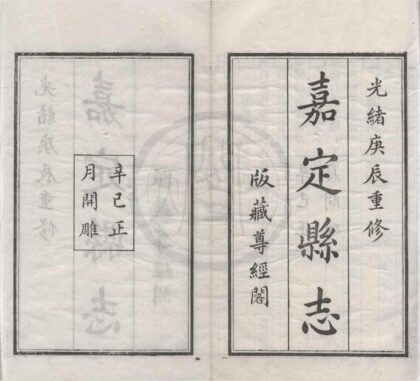 光緒庚辰重修
嘉定縣志
版藏尊經閣
辛巳正
月開雕